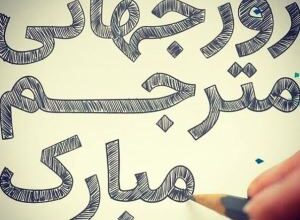 روز جهانی
مترجم
مبارک